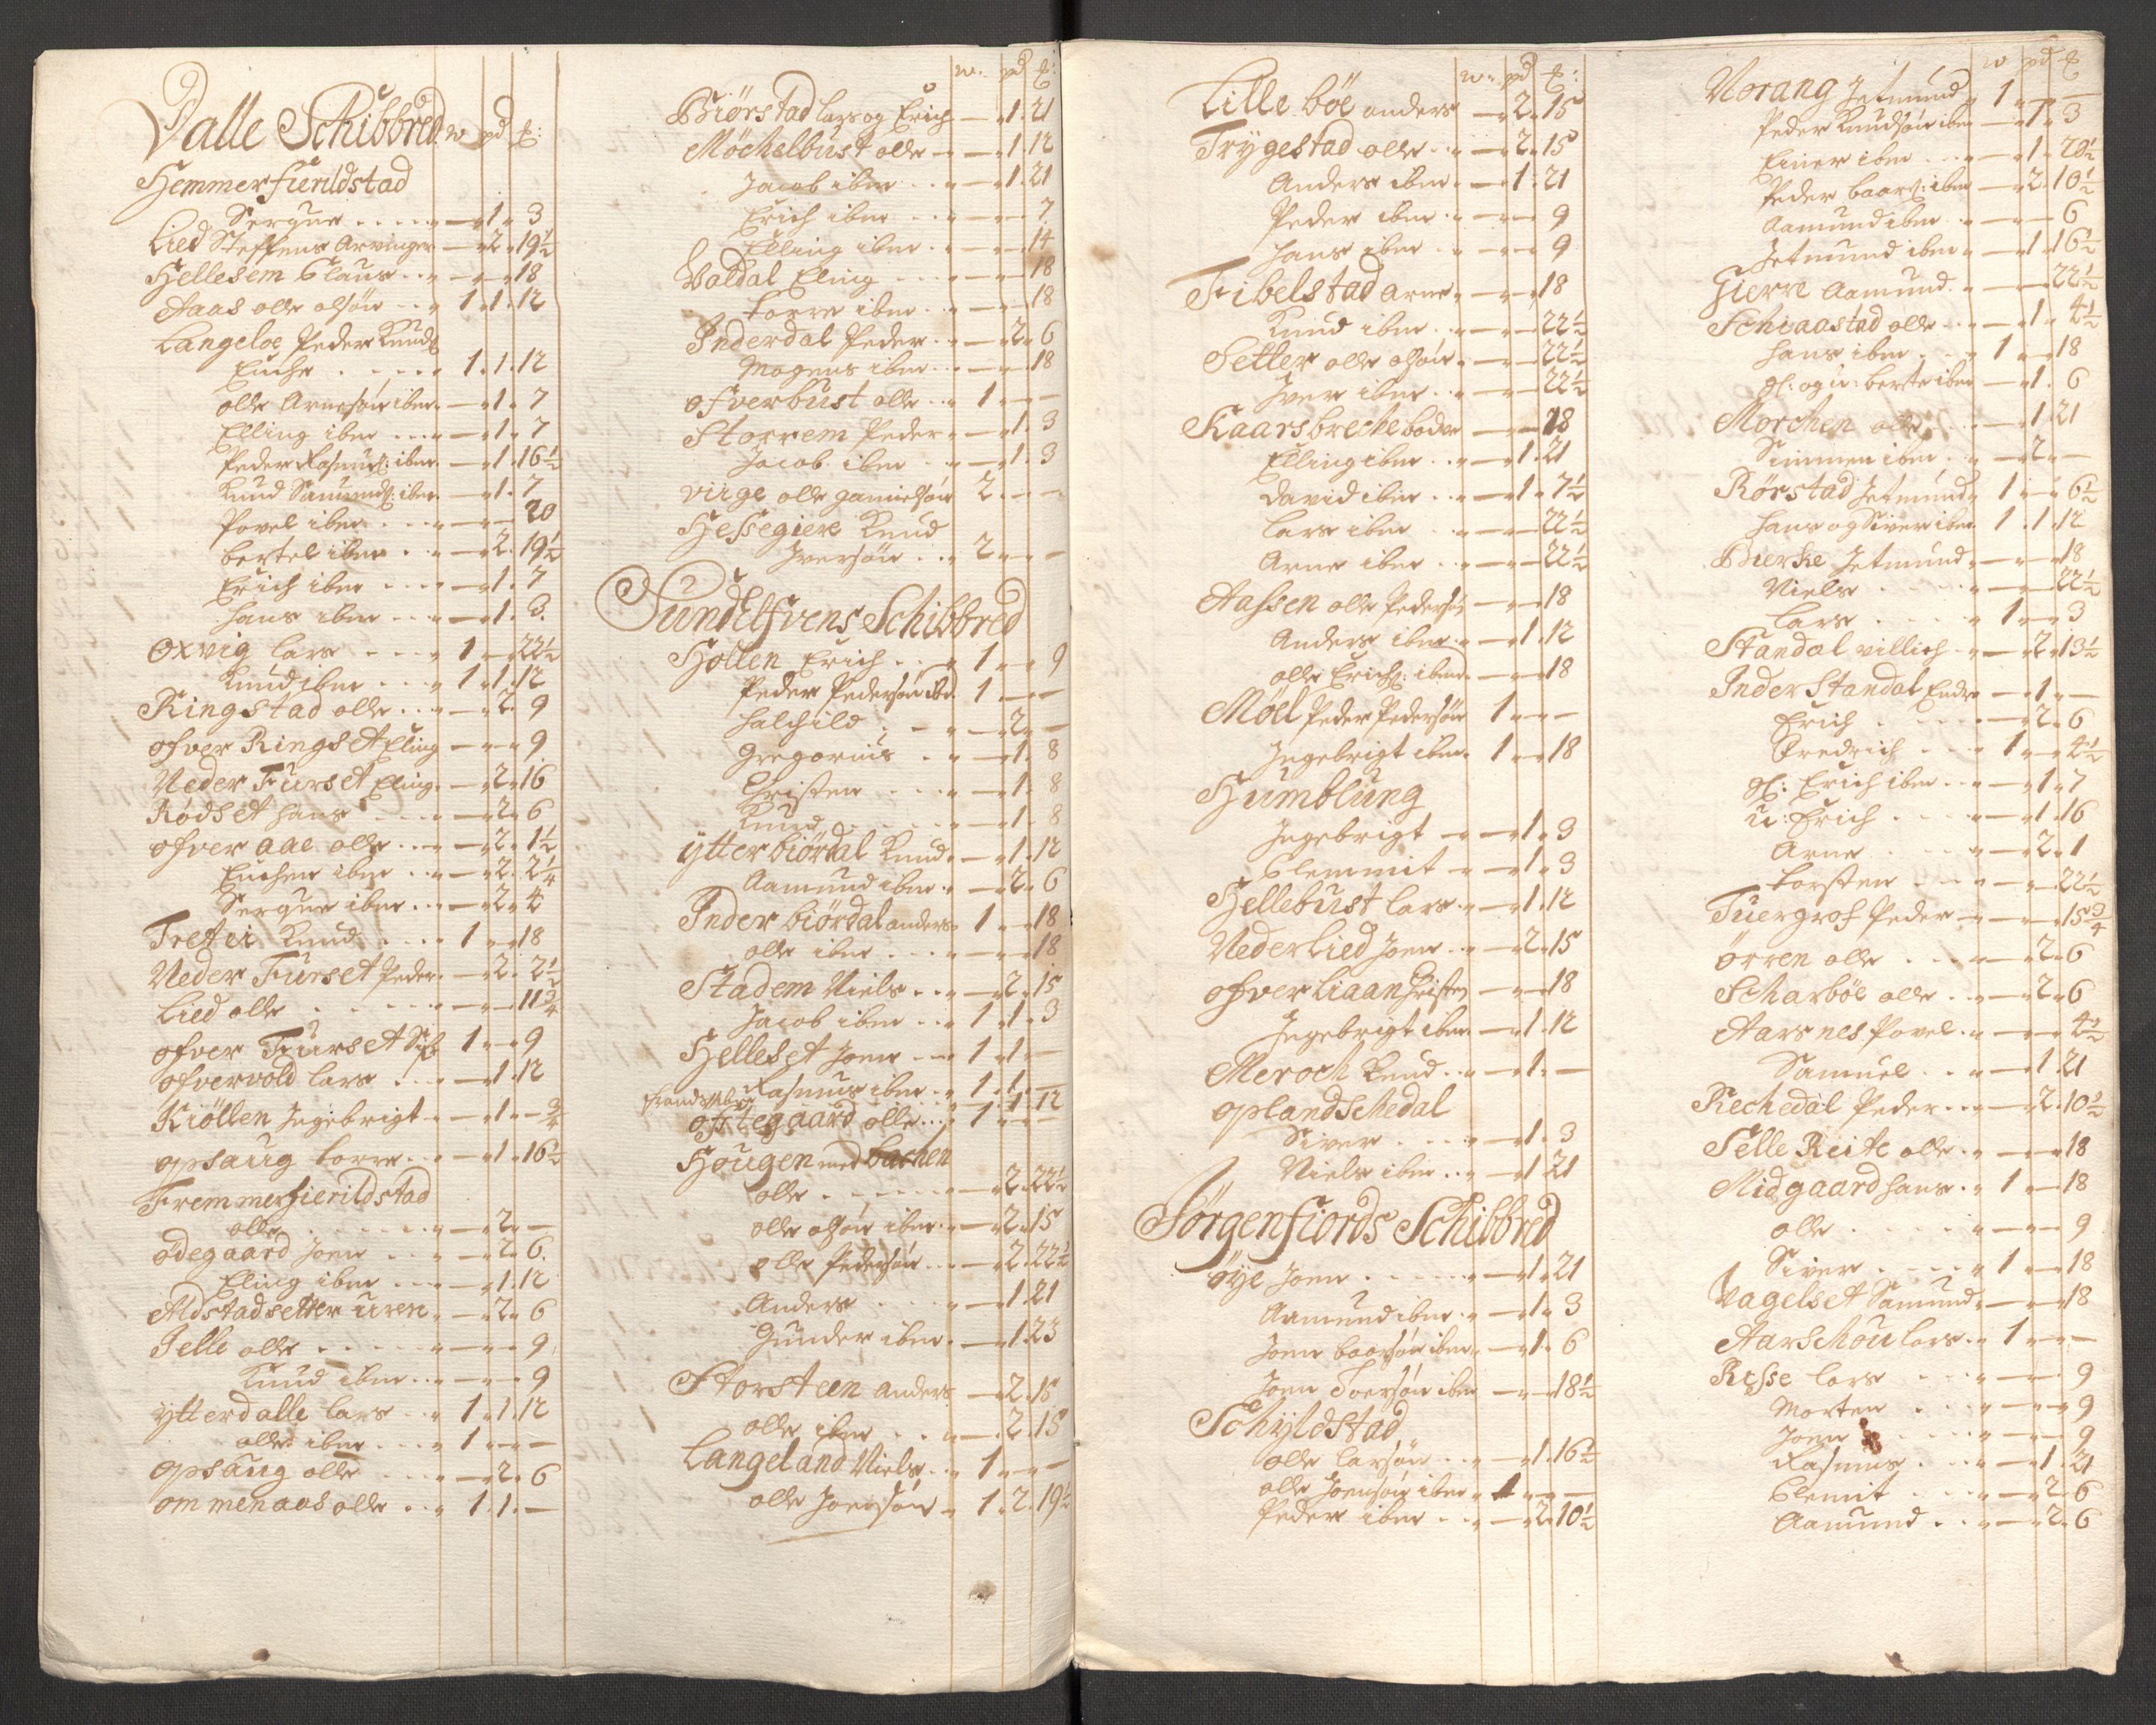 Dalle Schibbred w pd ℔:
Hemmerfierildstad
Sergue — 1 3
Lied Steffens Arvinger — 2 19½
Hellesem Claus — — 18
Aaas olle olsøn 1 1 12
Langeloe Peder Knuds
Enche 1 1 12
olle Arnesøn ibm — 1 7
Elling ibm — 1 7
Peder Rasmus: ibm — 1 16½
Knud Samunds: ibm — 1 7
Povel ibm — — 20
bertel ibm — 2 19½
Erich ibm — 1 7
hans ibm — 1 3
Oxvig lars 1 — 22½
Knud ibm 1 1 12
Ringstad olle — 2 9
ofver Ringset Eling — — 9
Neder Furset Eling — 2 16
Rødset hans — 2 6
ofver aae olle — 2 1½
Enchen ibm — 2 2¼
Sergue ibm — 2 4
Tretei Knud 1 — 18
Neder Furset Peder — 2 2½
Lied olle — — 11¾
ofver Furset Sif 1 — 9
ofvervold lars — 1 12
Kiøllen Ingebrigt — 1 — ¾
opsaug torre — 1 16½
Fremmerfierildstad
olle — 2 —
ødegaard Joen — 2 6
Eling ibm — 1 12
Aldstadsetter uren — 2 6
Telle olle — — 9
Knud ibm — — 9
ytterdalle lars 1 1 12
olle ibm 1 — —
opsaug olle — 2 6
ommenaas olle 1 1 —
w. pd ℔:
Biørstad lars og Erich — 1 21
Møchelbust olle — 1 12
Jacob ibm — 1 21
Erich ibm — — 7
Elling ibm — — 14
Valdal Eling — — 18
torre ibm — — 18
Inderdal Peder — 2 6
Mogens ibm — — 18
ofverbust olle 1 — —
Storrem Peder — 1 3
Jacob ibm — 1 3
virge olle gamielsøn 2 — —
Hessegiere Knud
Iversøn 2 — —
Sundelfvens Schibbred
Hollen Erich 1 — 9
Peder Pedersøn ibd 1 — —
halchild — 2 —
Gregorius — 1 8
Christen — 1 8
Knud — 1 8
ytterbiørdal Knud — 1 12
Aamund ibm — 2 6
Inderbiørdal anders 1 — 18
olle ibm — — 18
Stadem Niels — 2 15
Jacob ibm 1 1 3
Helleset Joen 1 1 —
Rasmus ibm 1 1 —
frands ibm 1 1 12
oftegaard olle 1 — —
Hougen med bachen
olle — 2 22½
olle olsøn ibm — 2 15
olle Pedersøn — 2 22½
Anders — 1 21
Gunder ibm — 1 23
Storsteen anders — 2 15
olle ibm — 2 15
Langeland Niels 1 — —
olle Joensøn 1 2 19½
w. pd ℔:
Lille bøe anders — 2 15
Trygestad olle — 2 15
Anders ibm — 1 21
Peder ibm — — 9
hans ibm — — 9
Fibelstad arne — — 18
Knud ibm — — 22½
Setler olle olsøn — — 22½
Iver ibm — — 22½
Kaarsbreche bader — — 18
Elling ibm — 1 21
david ibm — 1 7½
lars ibm — — 22½
Arne ibm — — 22½
Aassen olle Pedersøn — — 18
Anders ibm — 1 12
olle Erichs: ibm — — 18
Møel Peder Pedersøn 1 — —
Ingebrigt ibm 1 — 18
Humblung
Ingebrigt — 1 3
Clemmit — 1 3
Hellebust lars — 1 12
Nederlied Joen — 2 15
ofverliaan Christen — — 18
Ingebrigt ibm — 1 12
Meroch Knud — 1 —
oplandschedal
Siver — 1 3
Niels ibm — 1 21
Jørgenfiords Schibbred
øye Joen — 1 21
Aamund ibm — 1 3
Joen baarsøn ibm — 1 6
Joen Toersøn ibm — — 18½
Schyldstad
olle larsøn — 1 16½
olle Joensøn ibm 1 — —
Peder ibm — 2 10½
w pd ℔
Norang Jetmund 1 — —
Peder Knudsøn ibm — 1 3
Einer ibm — 1 20½
Peder baars: ibm — 2 10½
Aamund ibm — — 6
Jetmund ibm — 1 16½
Gierre Aamund — — 22½
Schiaastad olle — 1 4½
hans ibm 1 — 18
gl: og u: berte ibm — 1 6
Morchen olle — 1 21
Simmen ibm — 2 —
Rørstad Jetmund 1 — 6½
hans og Siver ibm 1 1 12
Bierke Jetmund — — 18
Niels — — 22½
Lars 1 — 3
Standal villich — 2 13½
Inder Standal Endre — 1 —
Erich — 2 6
Fredrich 1 — 4½
gl: Erich ibm — 1 7
u: Erich — 1 16
Arne — 2 1
torsten — — 22½
Tuergrof Peder — — 15¾
ørren olle — 2 6
Scharbøe olle — 2 6
Aarsnes Povel — — 4½
Samuel — 1 21
Rechedal Peder — 2 10½
Selle Reite olle — — 18
Midgaard hans 1 — 18
olle — — 9
Siver 1 — 18
Vagelset Samund — — 18
Aarschou lars 1 — —
Resse lars — — 9
Morten — — 9
Joen — — 9
Rasmus — 1 21
Clemit — 2 6
Aamund — 2 6